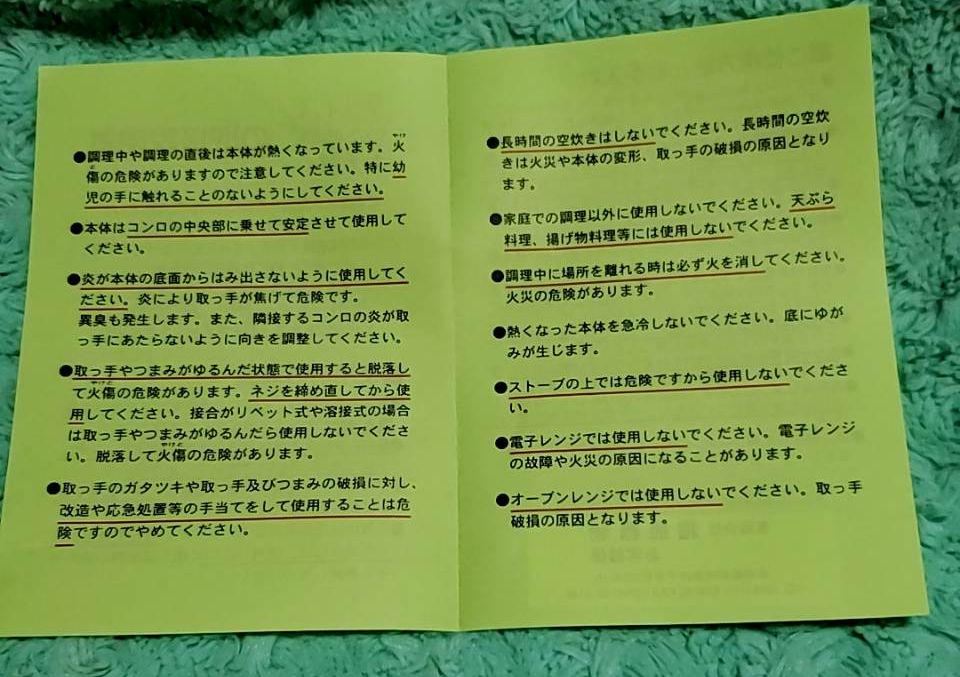 ●調理中や調理の直後は本体が熱くなっています。火
傷の危険がありますので注意してください。特に幼
児の手に触れることのないようにしてください。
●本体はコンロの中央部に乗せて安定させて使用して
ください。
●炎が本体の底面からはみ出さないように使用してく
ださい。炎により取っ手が焦げて危険です。
異臭も発生します。また、隣接するコンロの炎が取
っ手にあたらないように向きを調整してください。
●取っ手やつまみがゆるんだ状態で使用すると脱落し
て火傷の危険があります。ネジを締め直してから使
用してください。接合がリベット式や溶接式の場合
は取っ手やつまみがゆるんだら使用しないでくださ
い。脱落して火傷の危険があります。
●取っ手のガタツキや取っ手及びつまみの破損に対し、
改造や応急処置等の手当てをして使用することは危
険ですのでやめてください。
●長時間の空炊きはしないでください。長時間の空炊
きは火災や本体の変形、取っ手の破損の原因となり
ます。
●家庭での調理以外に使用しないでください。天ぷら
料理、揚げ物料理等には使用しないでください。
●調理中に場所を離れる時は必ず火を消してください。
火災の危険があります。
●熱くなった本体を急冷しないでください。底にゆが
みが生じます。
●ストーブの上では危険ですから使用しないでくださ
い。
●電子レンジでは使用しないでください。電子レンジ
の故障や火災の原因になることがあります。
●オーブンレンジでは使用しないでください。取っ手
破損の原因となります。